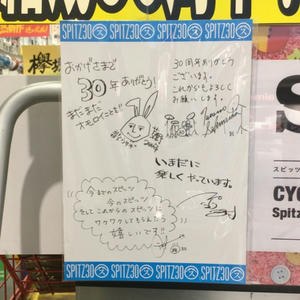 SPITZ30 SPITZ30 SPITZ30
おかげさまで
30年ありがとう!
まだまだ
オモロイことを
30周年ありがとう
ございます。
これからもよろしく
お願いします。
いまだに
楽しくやっています。
今までのスピッツ
今のスピッツ
そしてこれからのスピッツに
ワクワクしてもらえたら
嬉しいです!!
SPITZ30 SPITZ30 SPITZ30
スピッツ
CYC
Spitz